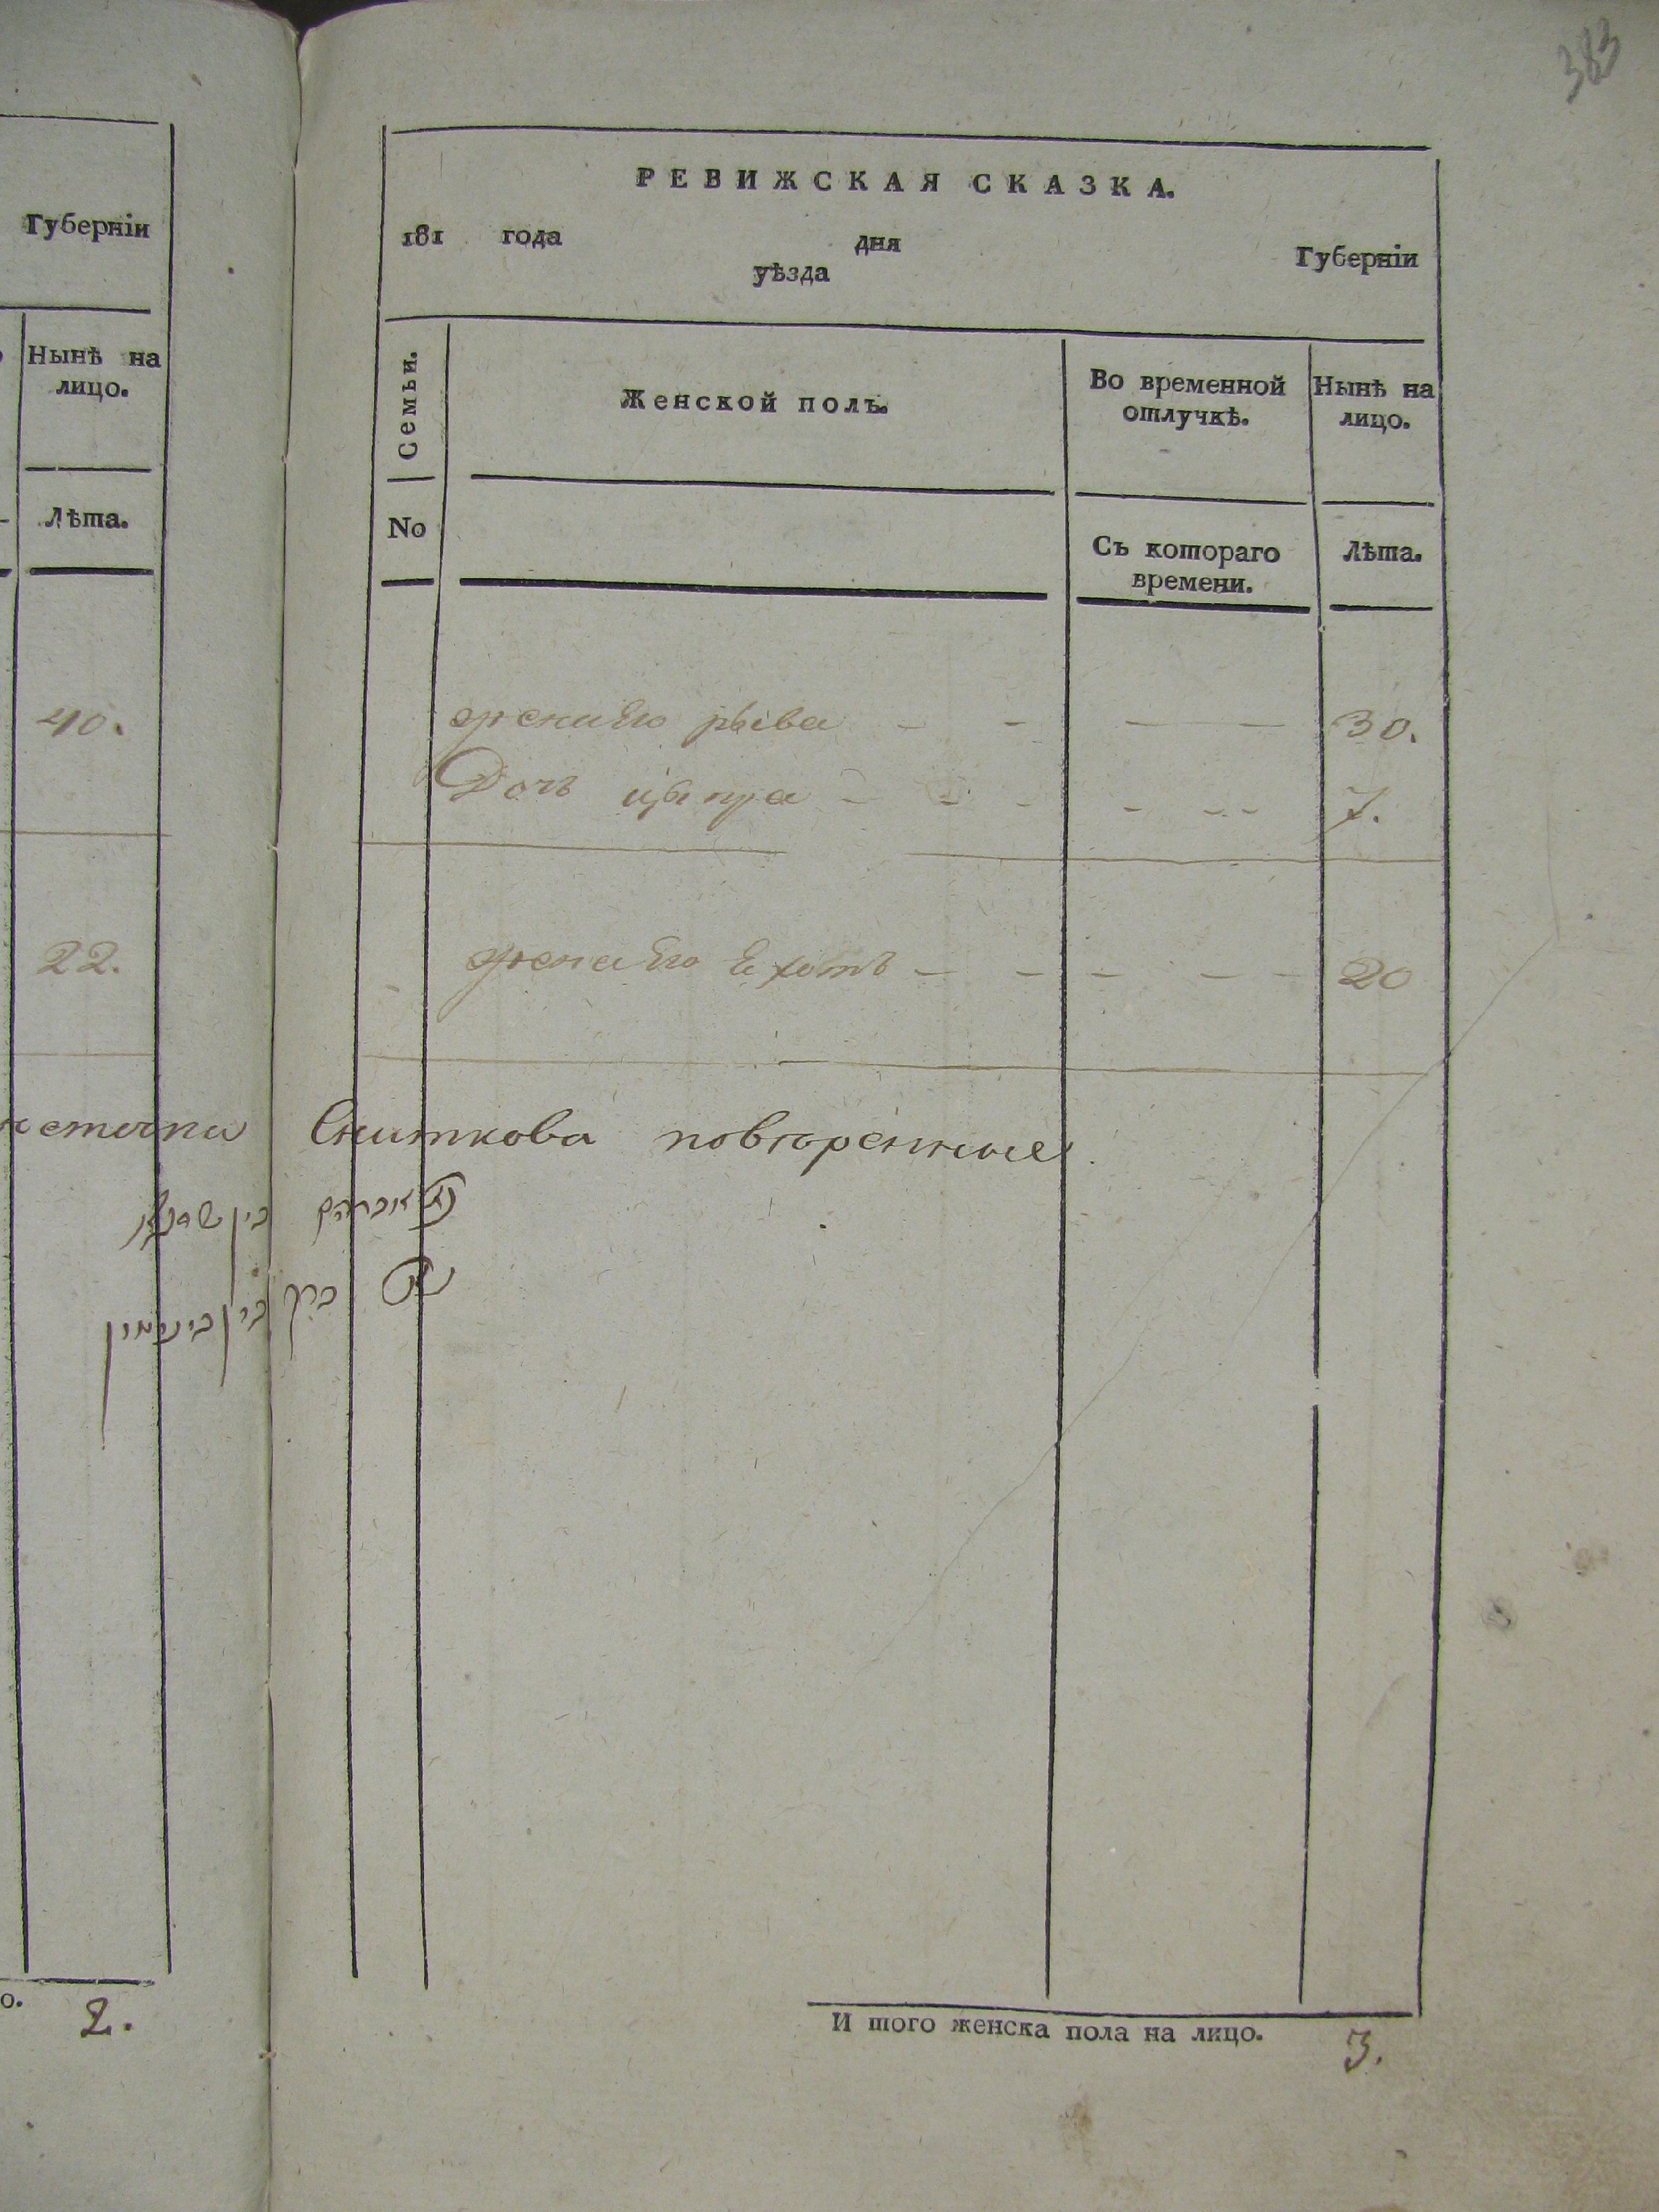 383
Губерніи
Нынѣ на
лицо.
Лѣта.
40.
22.
2.
РЕВИЖСКАЯ СКАЗКА.
181 года дня Губерніи
уѣзда
Семьи.
No
Женской полъ.
Во временной
отлучкѣ.
Съ котораго
времени.
Нынѣ на
лицо.
Лѣта.
жена его рыва 30.
Дочь ципра 7.
жена его 20
местечка Сниткова повѣренные
אברהם בין
בין בינימין
И того женска пола на лицо. 3.